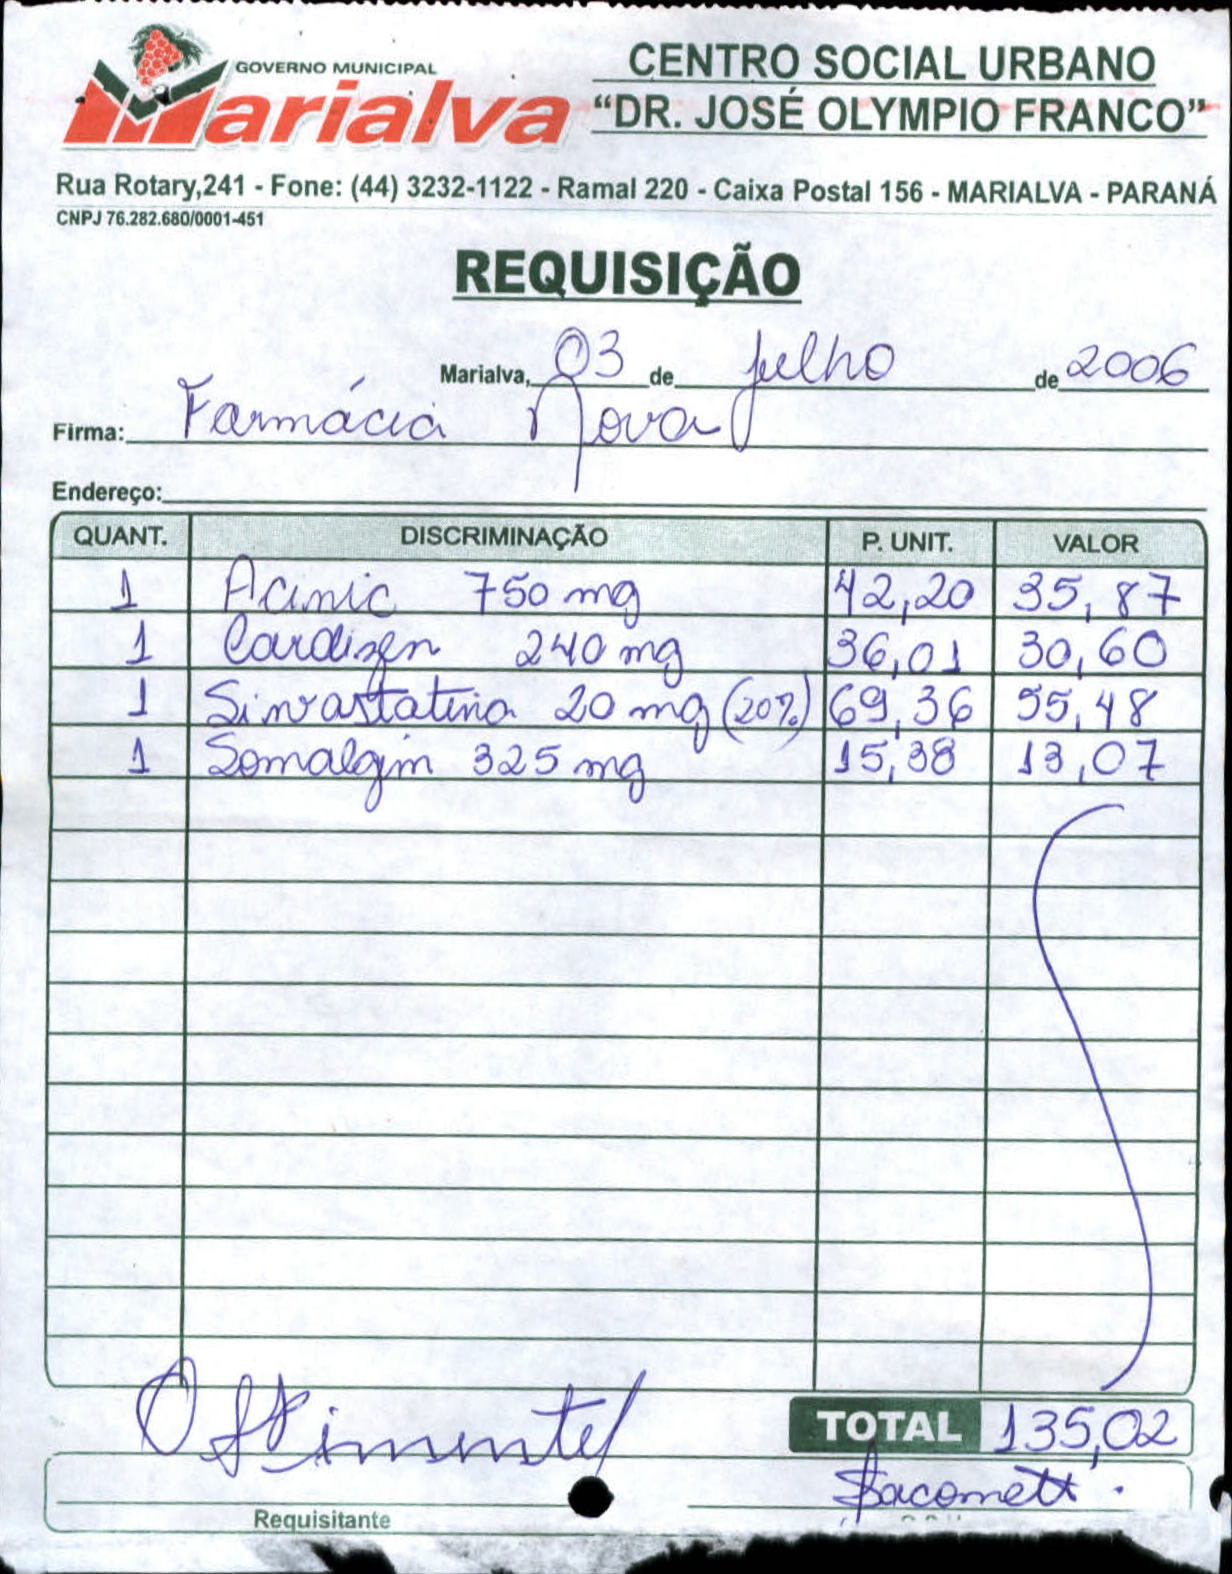 GOVERNO MUNICIPAL
Marialva
CENTRO SOCIAL URBANO
“DR. JOSÉ OLYMPIO FRANCO”
Rua Rotary,241 - Fone: (44) 3232-1122 - Ramal 220 - Caixa Postal 156 - MARIALVA - PARANÁ
CNPJ 76.282.680/0001-451
REQUISIÇÃO
Marialva, 03 de julho de 2006
Firma: Farmácia Nova
Endereço:
QUANT. DISCRIMINAÇÃO P. UNIT. VALOR
1 Acinic 750 mg 42,20 35,87
1 Cardizen 240 mg 36,01 30,60
1 Sinvastatina 20 mg (20%) 69,36 55,48
1 Somalgin 325 mg 15,38 13,07
TOTAL 135,02
Requisitante